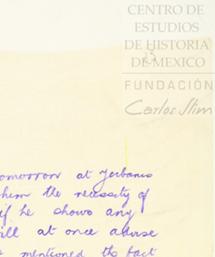 CENTRO DE
ESTUDIOS
DE HISTORIA
DE MEXICO
FUNDACIÓN
Carlos Slim
tomorrow at
him the necessity of
if he shows any
will at once advise
mentioned the fact